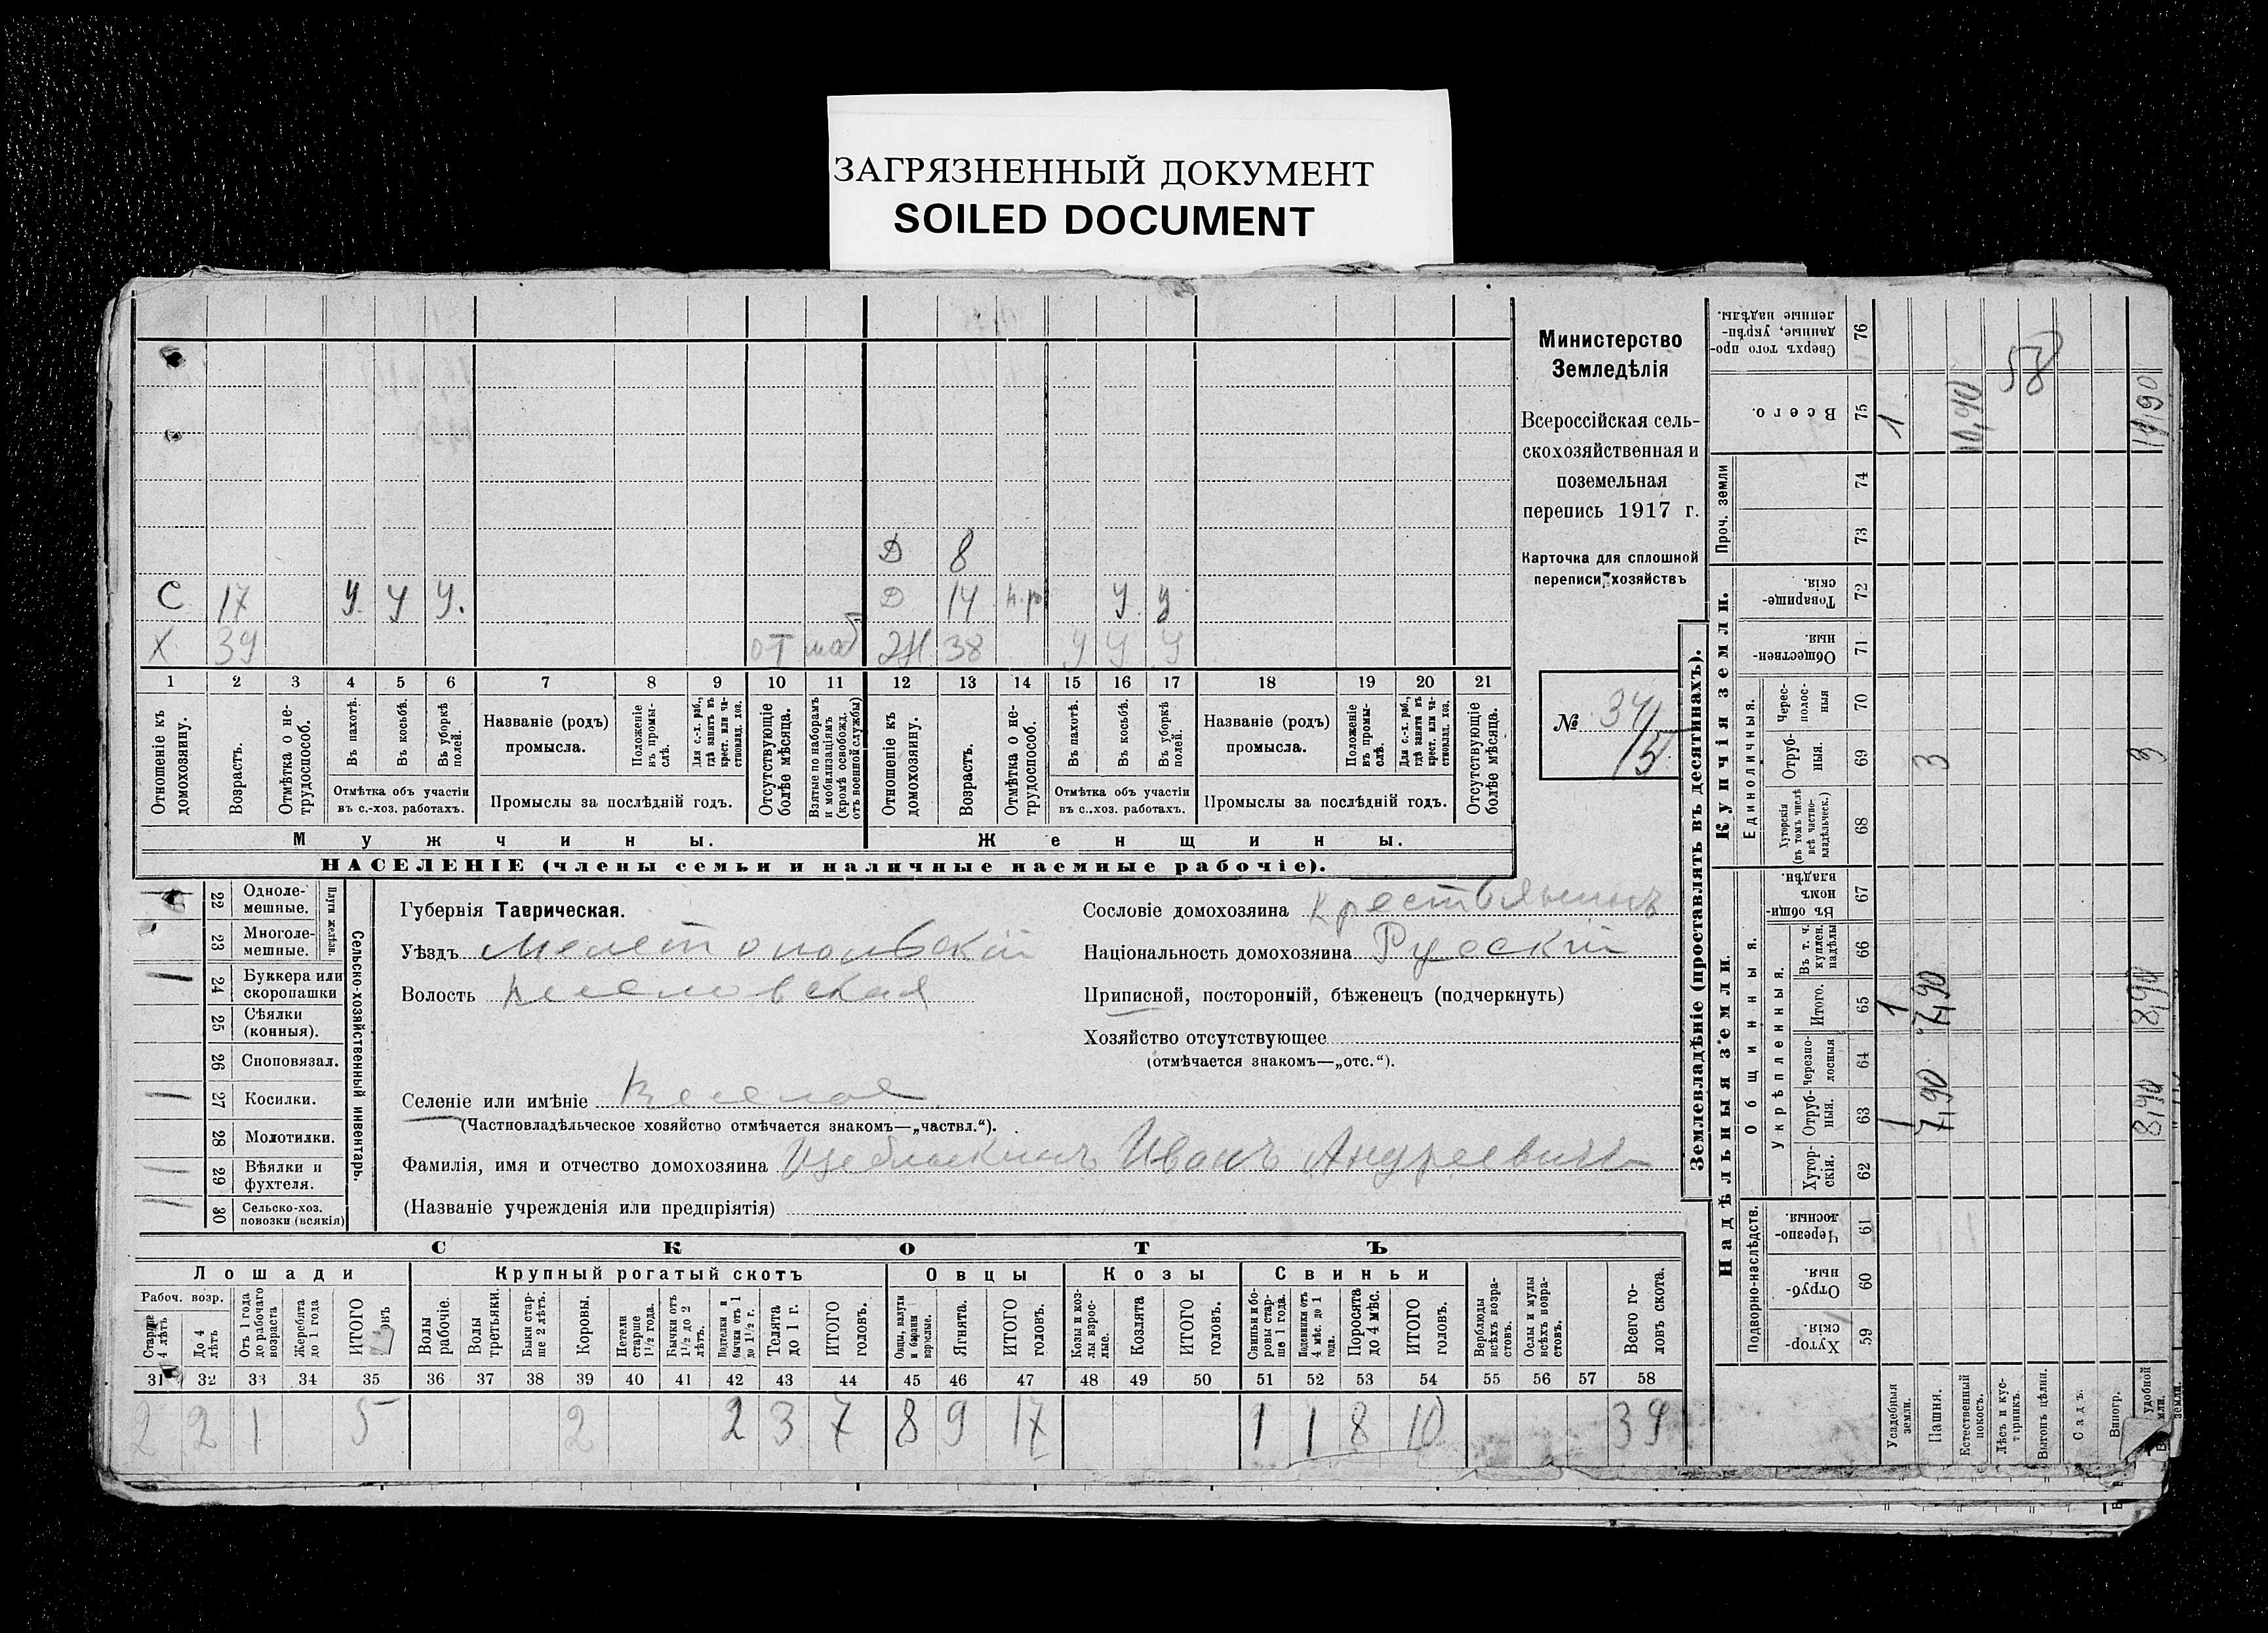 ЗАГРЯЗНЕННЫЙ ДОКУМЕНТ
SOILED DOCUMENT
Министерство
Земледѣлія
Всероссійская сель-
скохозяйственная и
поземельная
перепись 1917 г.
Карточка для сплошной
переписи хозяйствъ
№ 34/15
Д 8
С 17 У У У. Д 14 н.р У У
Х 39 от моб Ж 38 У У У
1 2 3 4 5 6 7 8 9 10 11 12 13 14 15 16 17 18 19 20 21
Отношеніе къ домохозяину.
Возрастъ.
Отмѣтка о не-трудоспособ.
Въ пахотѣ.
Въ косьбѣ.
Въ уборкѣ полей.
Отмѣтка объ участіи
въ с.-хоз. работахъ.
Названіе (родъ)
промысла.
Положеніе въ промы-слѣ.
Для с.-х. раб., гдѣ занятъ въ крест. или ча-стновлад. хоз.
Промыслы за послѣдній годъ.
Отсутствующіе болѣе мѣсяца.
Взятые по наборамъ и мобилизаціямъ (кромѣ освобожд. отъ военной службы)
Отношеніе къ домохозяину.
Возрастъ.
Отмѣтка о не-трудоспособ.
Въ пахотѣ.
Въ косьбѣ.
Въ уборкѣ полей.
Отмѣтка объ участіи
въ с..хоз. работахъ.
Названіе (родъ)
промысла.
Положеніе въ промы-слѣ.
Для с.-х. раб., гдѣ занята въ крест. или ча-стновлад. хоз.
Промыслы за послѣдній годъ.
Отсутствующіе болѣе мѣсяца.
Мужчины. Женщины.
НАСЕЛЕНІЕ (члены семьи и наличные наемные рабочіе).
Сельско-хозяйственный инвентарь.
Плуги желѣзн.
22 Одноле-мешные.
23 Многоле-мешные.
1 24 Буккера или скоропашки
25 Сѣялки (конныя).
26 Сноповязал.
1 27 Косилки.
28 Молотилки.
1 29 Вѣялки и фухтеля.
1 30 Сельско-хоз. повозки (всякія)
Губернія Таврическая.
Уѣздъ Мелетопольскій
Волость Веселовская
Селеніе или имѣніе Веселое
(Частновладѣльческое хозяйство отмѣчается знакомъ—„частвл.“).
Фамилія, имя и отчество домохозяина Щеблыкинъ Иванъ Андреевичъ
(Названіе учрежденія или предпріятія)
Сословіе домохозяина Крестьянинъ
Національность домохозяина Русскій
Приписной, посторонній, бѣженецъ (подчеркнуть)
Хозяйство отсутствующее
(отмѣчается знакомъ—„отс.“).
СКОТЪ
Лошади Крупный рогатый скотъ Овцы Козы Свиньи
Рабоч. возр.
Старше 4 лѣтъ
До 4 лѣтъ
Отъ 1 года до рабочаго возраста
Жеребята до 1 года
ИТОГО
Волы рабочіе.
Волы третьяки.
Быки стар-ше 2 лѣтъ.
Коровы.
Нетели старше 1½ года.
Бычки отъ 1½ до 2 лѣтъ.
Подтелки и бычки отъ 1 до 1½ г.
Телята до 1 г.
ИТОГО головъ.
Овцы, валухи и бараны взрослые.
Ягнята.
ИТОГО головъ.
Козы и коз-лы взрос-лые.
Козлята
ИТОГО головъ.
Свиньи и бо-ровы стар-ше 1 года.
Подсвинки отъ 4 мѣс. до 1 года.
Поросята до 4 мѣс.
ИТОГО головъ.
Верблюды всѣхъ возра-стовъ.
Ослы и мулы всѣхъ возра-стовъ.
Всего го-ловъ скота.
31 32 33 34 35 36 37 38 39 40 41 42 43 44 45 46 47 48 49 50 51 52 53 54 55 56 57 58
2 2 1 5 2 2 3 7 8 9 17 1 1 8 10 39
Землевладѣніе (проставлять въ десятинахъ).
Сверхъ того про-данные, укрѣп-ленные надѣлы. 76
Всего. 75 1 10,90 58 11,90
Проч. земли 74 73
Купчія земли.
Товарище-скія. 72
Обществен-ныя. 71
Единоличныя.
Черес-полос-ныя 70
Отруб-ныя. 69 3 3
Хуторскія (въ томъ числѣ всѣ частно-владѣльческ.) 68
Надѣльныя земли
Общинныя.
Въ общи-номъ владѣн. 67
Укрѣпленныя.
Въ т. ч. куплен. надѣлы 66
Итого. 65 1 7,90 8,90
Черезпо-лосныя 64
Отруб-ныя. 63 1 7,90 8,90
Хутор-скія. 62
Подворно-наслѣдств.
Черезпо-лосныя. 61
Отруб-ныя. 60
Хутор-скія. 59
Усадебныя земли.
Пашня.
Естественный покосъ.
Лѣсъ и кус-тарникъ.
Выгонъ цѣлин.
Садъ.
Виногр.
удобной